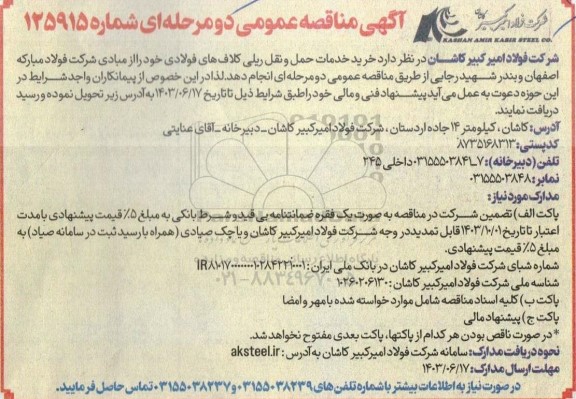 آگهی مناقصه عمومی دو مرحله‌ای شماره ۱۲۵۹۱۵
شرکت فولاد امیرکبیر کاشان
KASHAN AMIR KABIR STEEL CO.
شرکت فولاد امیر کبیر کاشان در نظر دارد خرید خدمات حمل و نقل ریلی کلاف‌های فولادی خود را از مبادی شرکت فولاد مبارکه
اصفهان و بندر شهید رجایی از طریق مناقصه عمومی دو مرحله‌ای انجام دهد. لذا در این خصوص از پیمانکاران واجد شرایط در
این حوزه دعوت به عمل می‌آید پیشنهاد فنی و مالی خود را طبق شرایط ذیل تا تاریخ ۱۴۰۳/۰۶/۱۷ به آدرس زیر تحویل نموده و رسید
دریافت نمایند.
آدرس: کاشان، کیلومتر ۱۴ جاده اردستان، شرکت فولاد امیرکبیر کاشان ـ دبیرخانه ـ آقای عنایتی
کدپستی: ۸۷۳۵۱۶۸۳۱۳
تلفن (دبیرخانه): ۷ـ۰۳۱۵۵۵۰۳۸۴۱ داخلی ۲۴۵
نمابر: ۰۳۱۵۵۵۰۳۸۴۸
مدارک مورد نیاز:
پاکت الف) تضمین شرکت در مناقصه به صورت یک فقره ضمانتنامه بی قید و شرط بانکی به مبلغ ۵٪ قیمت پیشنهادی با مدت
اعتبار تا تاریخ ۱۴۰۳/۱۰/۰۱ قابل تمدید در وجه شرکت فولاد امیرکبیر کاشان و یا چک صیادی (همراه با رسید ثبت در سامانه صیاد) به
مبلغ ۵٪ قیمت پیشنهادی.
شماره شبای شرکت فولاد امیرکبیر کاشان در بانک ملی ایران:
شناسه ملی شرکت فولاد امیرکبیر کاشان: ۱۰۲۶۰۲۰۶۱۳۰
پاکت ب) کلیه اسناد مناقصه شامل موارد خواسته شده با مهر و امضا
پاکت ج) پیشنهاد مالی
* در صورت ناقص بودن هر کدام از پاکتها، پاکت بعدی مفتوح نخواهد شد.
نحوه دریافت مدارک: سامانه شرکت فولاد امیرکبیر کاشان به آدرس: aksteel.ir
مهلت ارسال مدارک: ۱۴۰۳/۰۶/۱۷
در صورت نیاز به اطلاعات بیشتر با شماره تلفن‌های ۰۳۱۵۵۵۰۳۸۲۳۹ و ۰۳۱۵۵۵۰۳۸۲۳۷ تماس حاصل فرمایید.